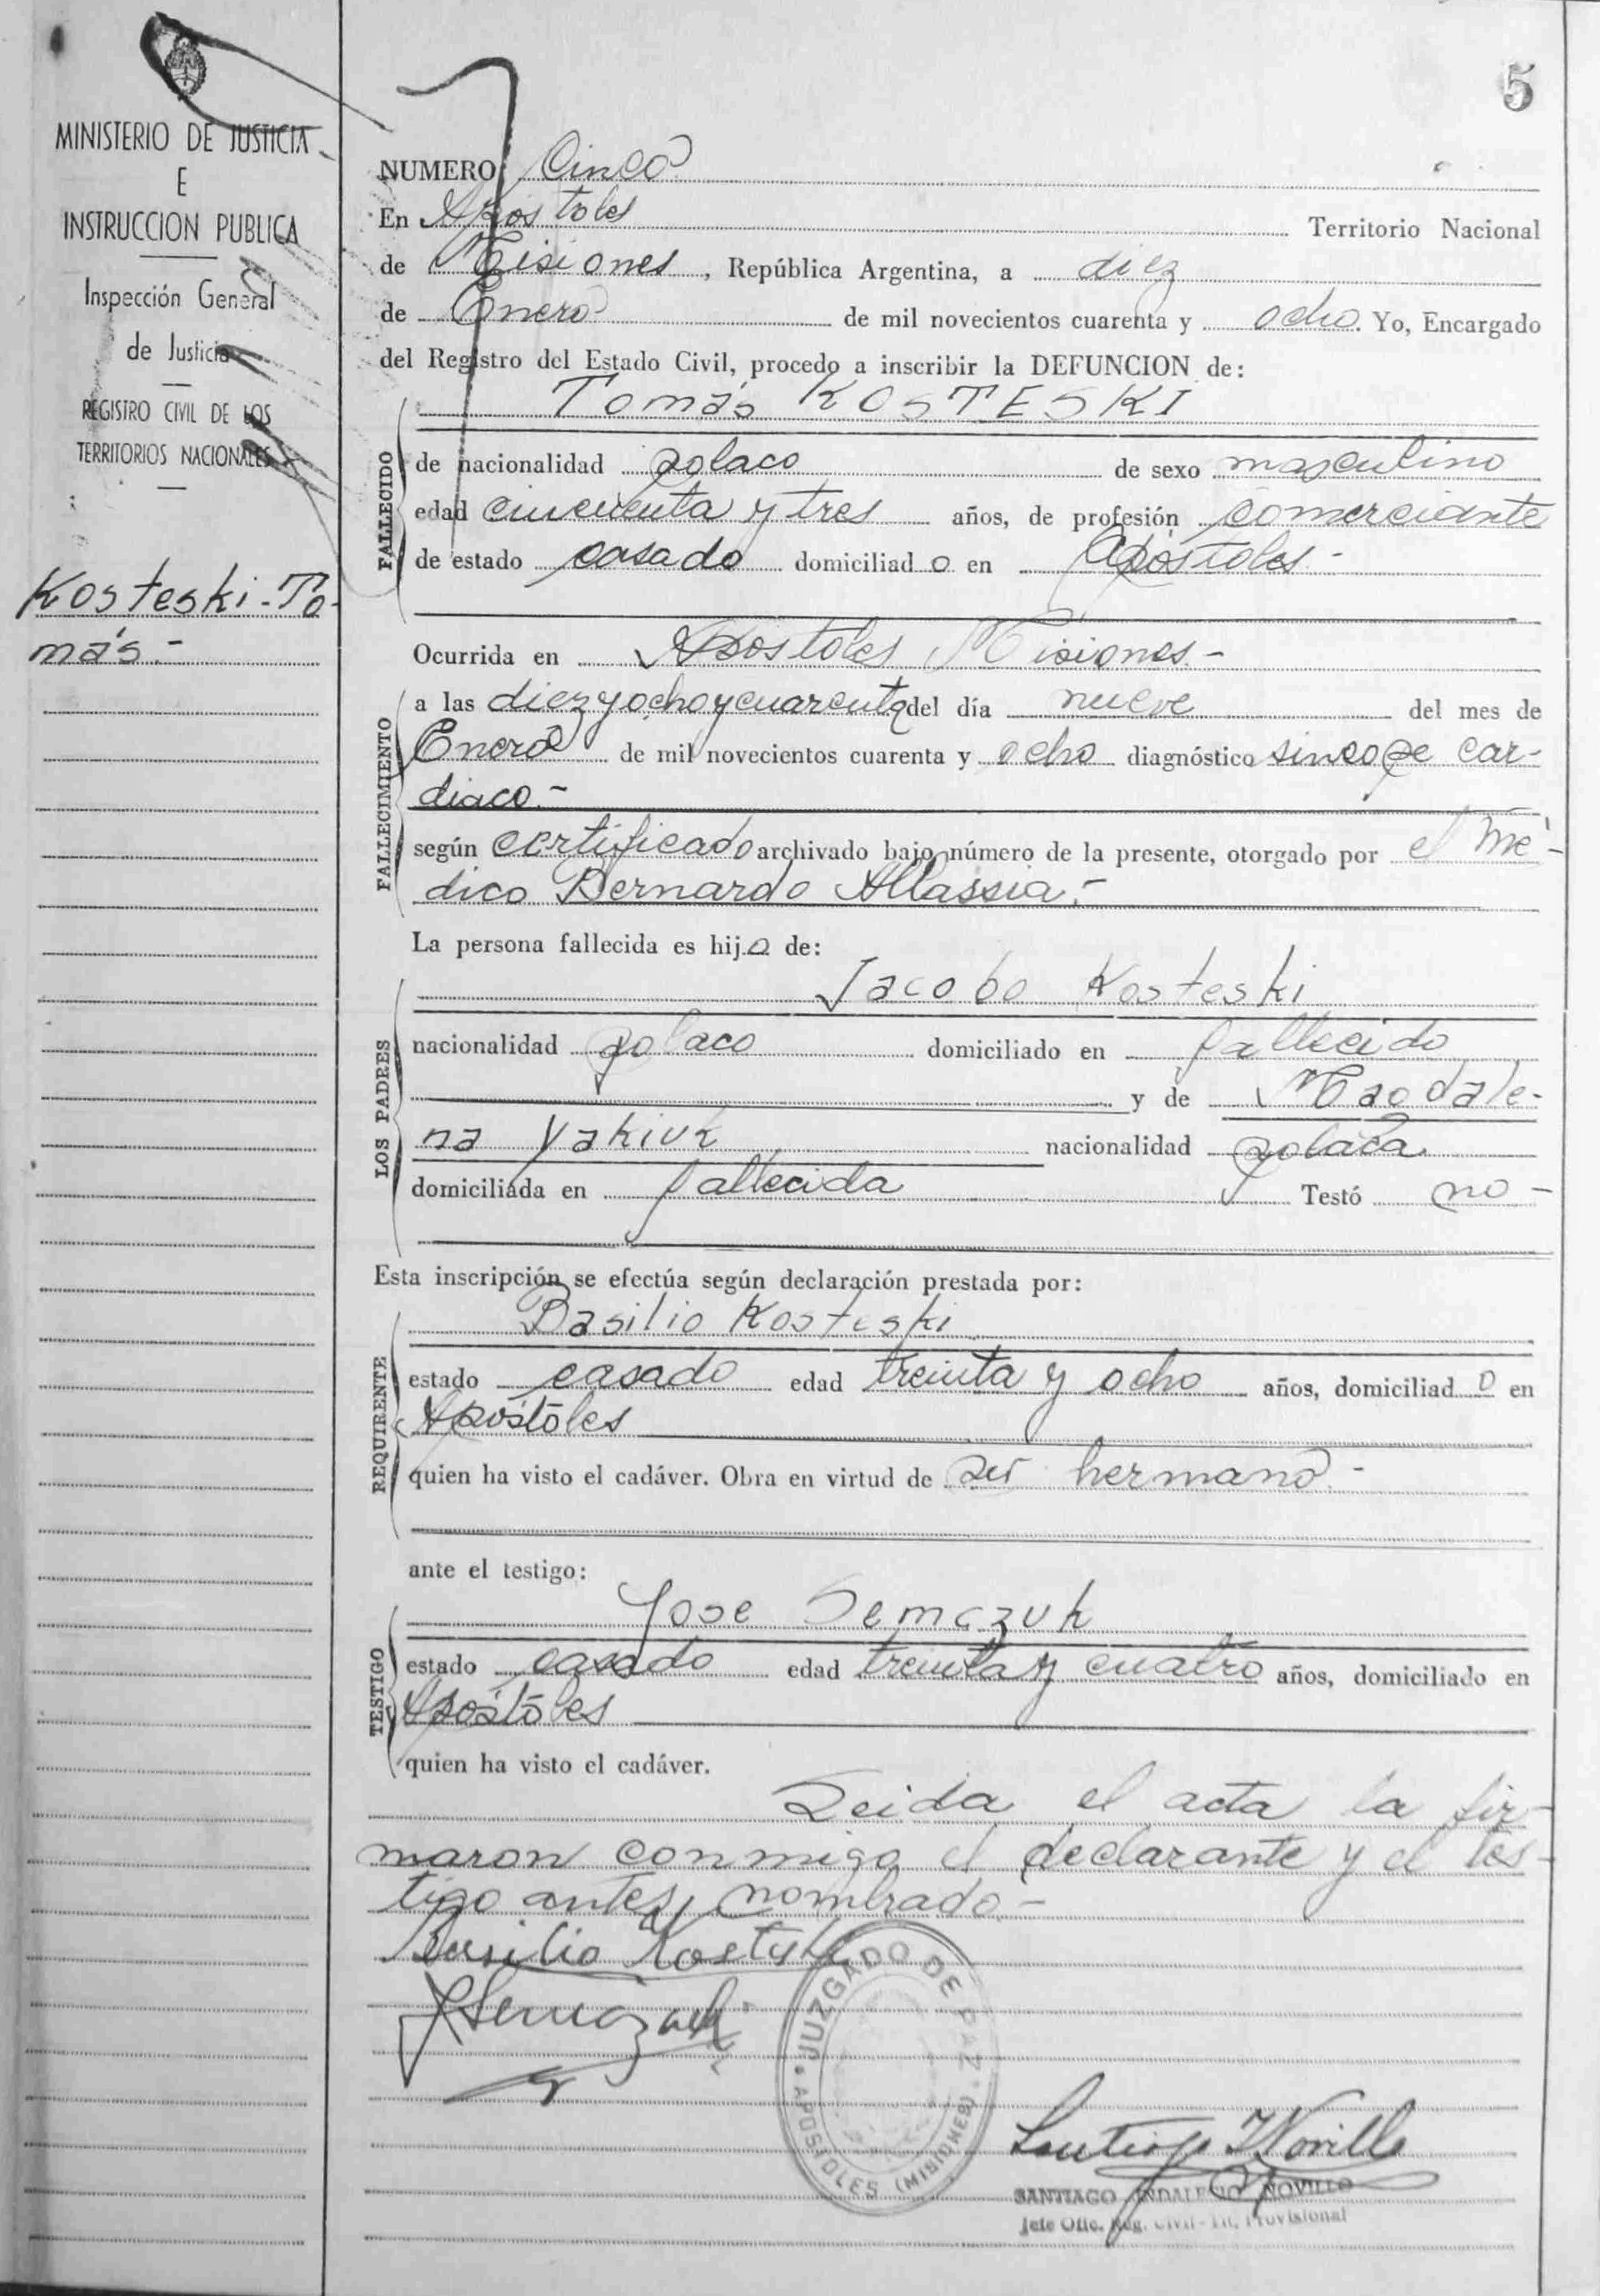 5
MINISTERIO DE JUSTICIA
E
INSTRUCCION PUBLICA
Inspección General
de Justicia
REGISTRO CIVIL DE LOS
TERRITORIOS NACIONALES
Kosteski - To
más.-
NUMERO Cinco
En Apostoles Territorio Nacional
de Misiones, República Argentina, a diez
de Enero de mil novecientos cuarenta y ocho. Yo, Encargado
del Registro del Estado Civil, procedo a inscribir la DEFUNCION de:
Tomás KOSTESKI
FALLECIDO
de nacionalidad polaco de sexo masculino
edad cincuenta y tres años, de profesión comerciante
de estado casado domiciliad o en Apóstoles-
Ocurrida en Apostoles Misiones.-
FALLECIMIENTO
a las diez y ocho y cuarenta del día nueve del mes de
Enero de mil novecientos cuarenta y ocho diagnóstico sincope car-
diaco.-
según certificado archivado bajo número de la presente, otorgado por el mé-
dico Bernardo Allassia.-
La persona fallecida es hijo de:
LOS PADRES
Jacobo Kosteski
nacionalidad polaco domiciliado en fallecido
y de Magdale-
na Yakiuk nacionalidad polaca
domiciliada en fallecida Testó no-
Esta inscripción se efectúa según declaración prestada por:
REQUIRENTE
Basilio Kosteski
estado casado edad treinta y ocho años, domiciliad o en
Apóstoles
quien ha visto el cadáver. Obra en virtud de ser hermano.-
ante el testigo:
TESTIGO
Jose Semczuk
estado casado edad treinta y cuatro años, domiciliado en
Apóstoles
quien ha visto el cadáver.
Leida el acta la fir-
maron conmigo el declarante y el tes-
tigo antes nombrado.-
Basilio Kosteski
JUZGADO DE PAZ
APOSTOLES (MISIONES)
SANTIAGO INDALECIO NOVILLO
Jefe Ofic. Reg. Civil - Tit. Provisional